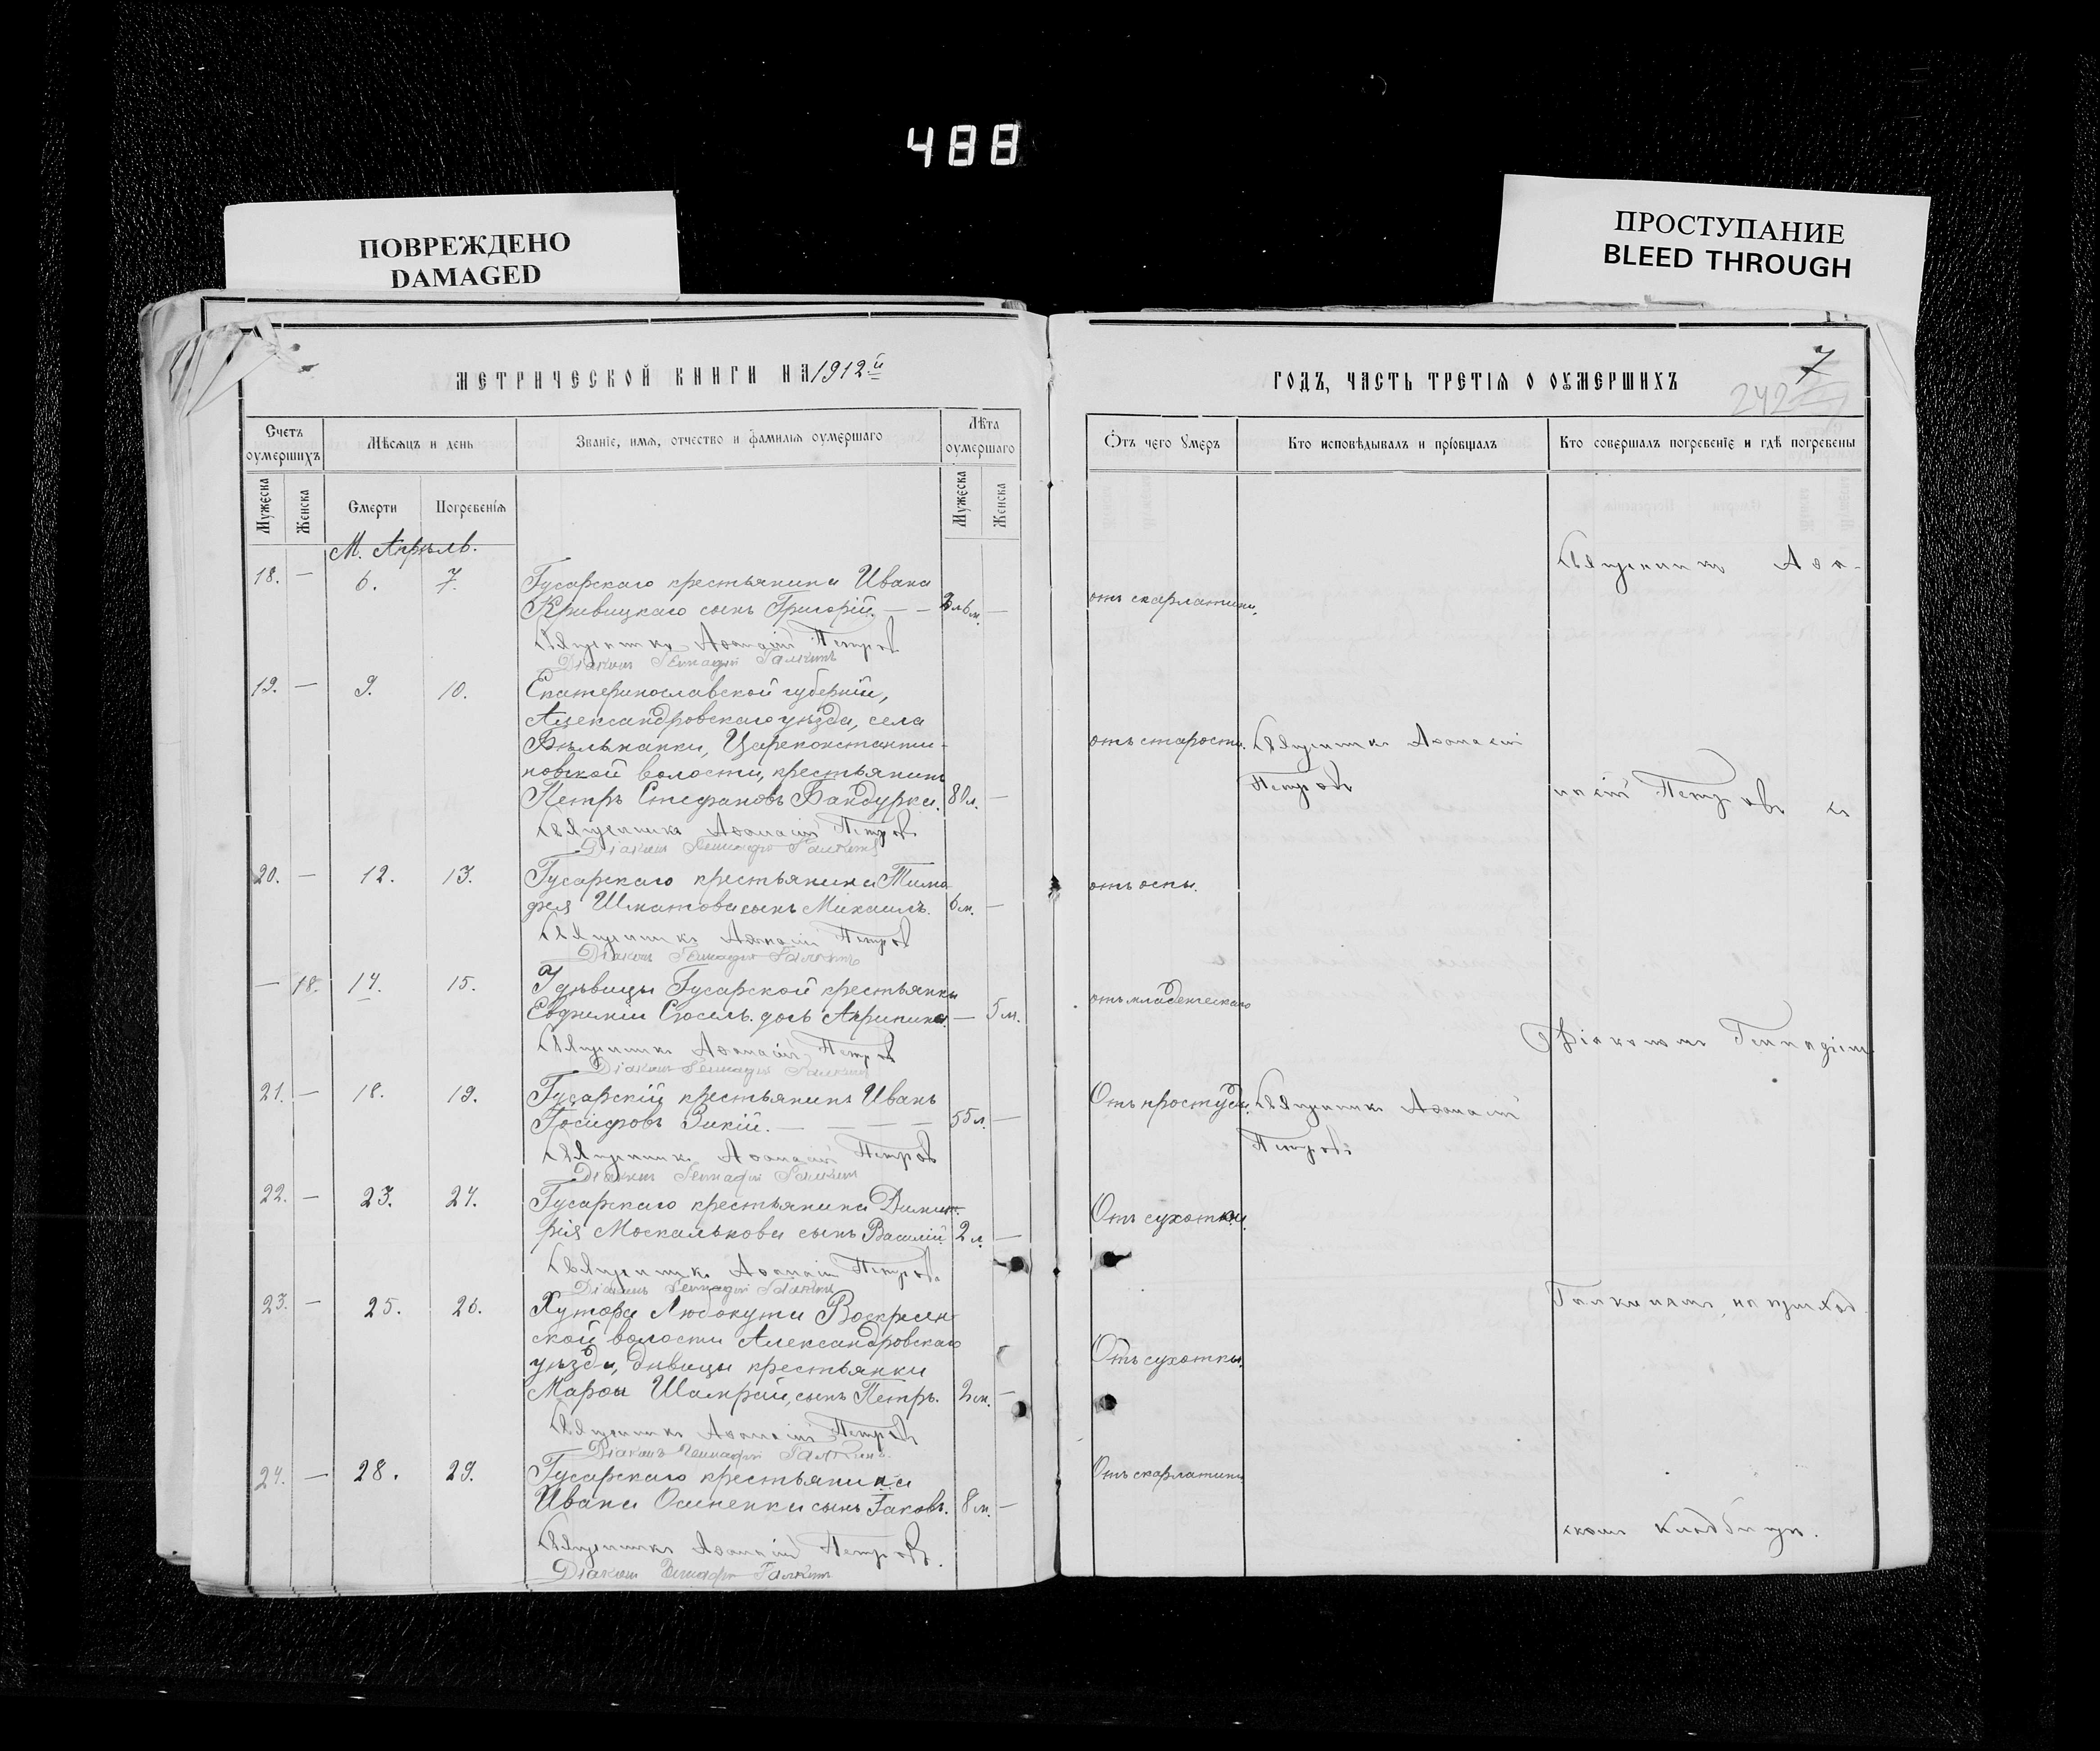 488
ПОВРЕЖДЕНО
DAMAGED
ПРОСТУПАНИЕ
BLEED THROUGH
МЕТРИЧЕСКОЙ КНИГИ НА 1912й
Счетъ оумершихъ
Мѣсяцъ и день
Званіе, имя, отчество и фамилія оумершаго
Лѣта оумершаго
Мужеска
Женска
Смерти
Погребенія
Мужеска
Женска
М. Апрѣль.
18. — 6. 7. Гусарскаго крестьянина Ивана
Кривицкаго сынъ Григорій. — — 6 м. —
Священникъ Аѳанасій Петровъ
Діаконъ Геннадій Галкинъ
19. — 9. 10. Екатеринославской губерніи,
Александровскаго уѣзда, села
Бѣльманки, Цареконстанти-
новской волости, крестьянинъ
Петръ Стефановъ Бандурка. 80 л. —
Священникъ Аѳанасій Петровъ
Діаконъ Геннадій Галкинъ
20. — 12. 13. Гусарскаго крестьянина Тимо-
фея Шматова сынъ Михаилъ. 6 м. —
Священникъ Аѳанасій Петровъ
Діаконъ Геннадій Галкинъ
— 18. 14. 15. У дѣвицы Гусарской крестьянки
Евфиміи дочь Акрипина. — 5 м.
Священникъ Аѳанасій Петровъ
Діаконъ Геннадій Галкинъ
21. — 18. 19. Гусарскій крестьянинъ Иванъ
Іосифовъ Зикій. — — — — 55 л. —
Священникъ Аѳанасій Петровъ
Діаконъ Геннадій Галкинъ
22. — 23. 24. Гусарскаго крестьянина Димит-
рія Москалькова сынъ Василій. 2 л. —
Священникъ Аѳанасій Петровъ
Діаконъ Геннадій Галкинъ
23. — 25. 26. Хутора Воскресен-
ской волости Александровскаго
уѣзда, дѣвицы крестьянки
Марѳы Шамрай, сынъ Петръ. 2 м. —
Священникъ Аѳанасій Петровъ
Діаконъ Геннадій Галкинъ
24. — 28. 29. Гусарскаго крестьянина
Ивана Осипенки сынъ Іаковъ. 8 м. —
Священникъ Аѳанасій Петровъ.
Діаконъ Геннадій Галкинъ
7
242
ГОДЪ, ЧАСТЬ ТРЕТІЯ О ОУМЕРШИХЪ
Отъ чего умеръ
Кто исповѣдывалъ и пріобщалъ
Кто совершалъ погребеніе и гдѣ погребены
Священникъ Аѳа-
отъ скарлатины.
отъ старости. Священникъ Аѳанасій
Петровъ
насій Петровъ съ
отъ оспы.
отъ младенческаго
Діакономъ Геннадіемъ
Отъ простуды. Священникъ Аѳанасій
Петровъ
Отъ сухотки.
Галкинымъ, на приход-
Отъ сухотки.
Отъ скарлатины
скомъ кладбищѣ.